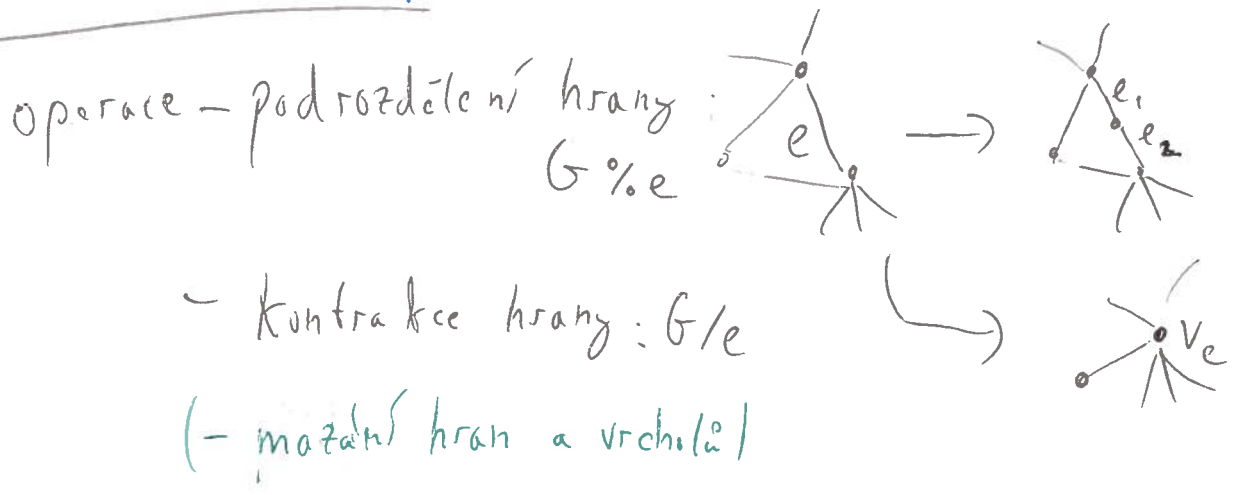 operace – podrozdělení hrany :
G % e
e
e₁
e₂
– kontrakce hrany : G/e
v_e
(– mazání hran a vrcholů)